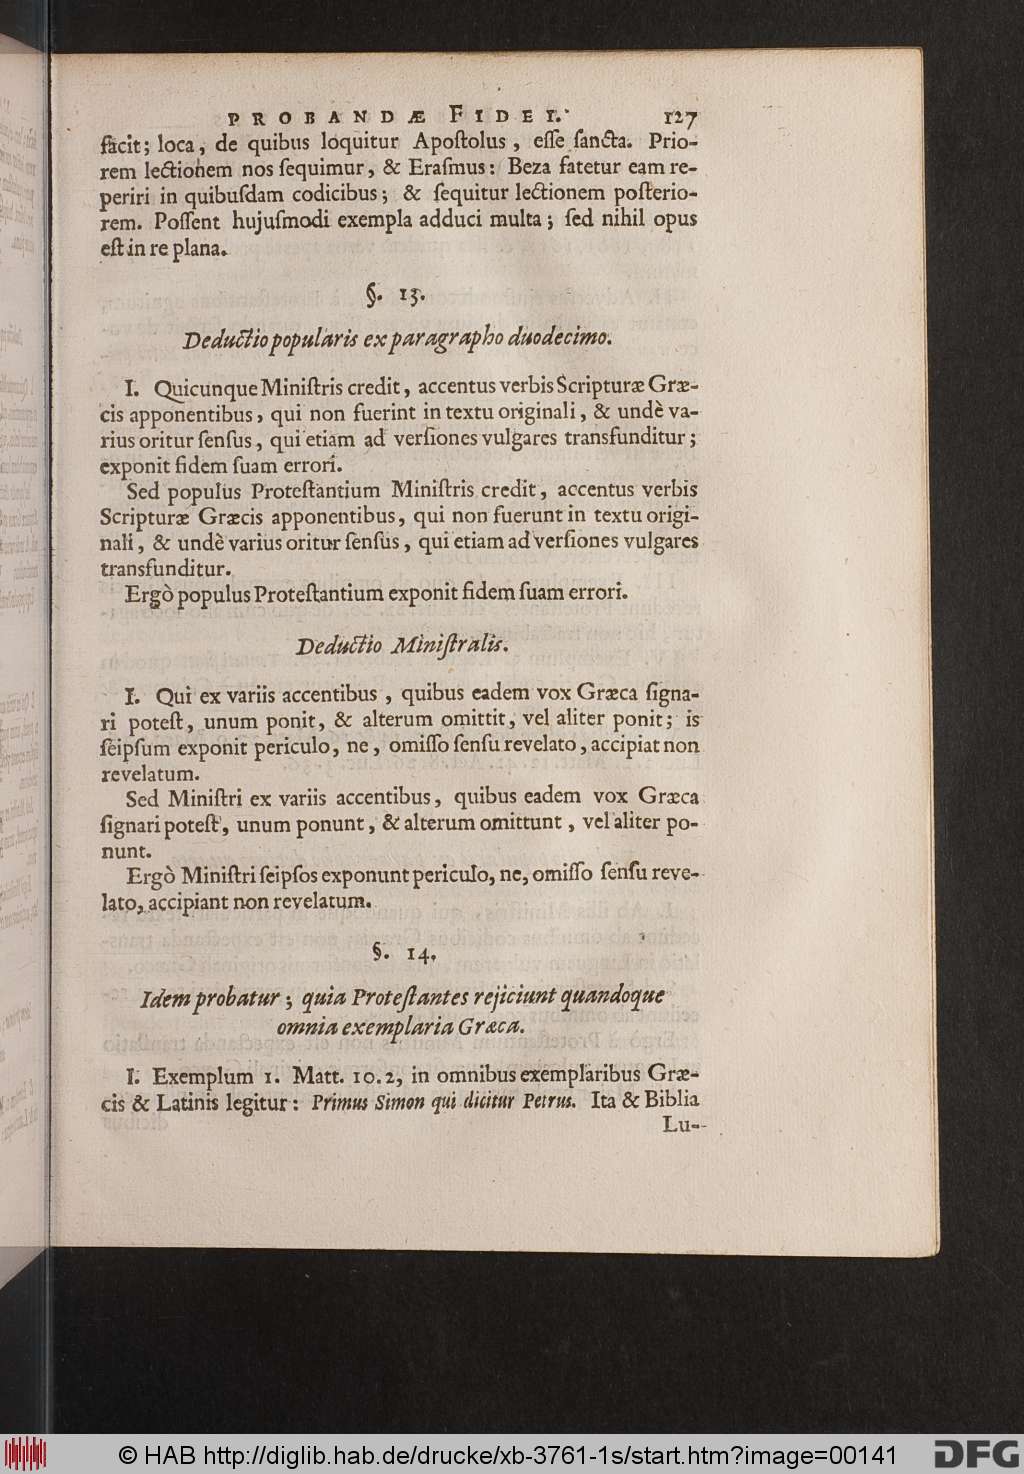 PROBANDÆ FIDEI. 127
facit; loca, de quibus loquitur Apoſtolus, eſſe ſancta. Prio-
rem lectionem nos ſequimur, & Eraſmus: Beza fatetur eam re-
periri in quibuſdam codicibus; & ſequitur lectionem poſterio-
rem. Poſſent hujuſmodi exempla adduci multa; ſed nihil opus
eſt in re plana.
§. 13.
Deductio popularis ex paragrapho duodecimo.
I. Quicunque Miniſtris credit, accentus verbis Scripturæ Græ-
cis apponentibus, qui non fuerint in textu originali, & undè va-
rius oritur ſenſus, qui etiam ad verſiones vulgares transfunditur;
exponit fidem ſuam errori.
Sed populus Proteſtantium Miniſtris credit, accentus verbis
Scripturæ Græcis apponentibus, qui non fuerunt in textu origi-
nali, & undè varius oritur ſenſus, qui etiam ad verſiones vulgares
transfunditur.
Ergò populus Proteſtantium exponit fidem ſuam errori.
Deductio Miniſtralis.
I. Qui ex variis accentibus, quibus eadem vox Græca ſigna-
ri poteſt, unum ponit, & alterum omittit, vel aliter ponit; is
ſeipſum exponit periculo, ne, omiſſo ſenſu revelato, accipiat non
revelatum.
Sed Miniſtri ex variis accentibus, quibus eadem vox Græca
ſignari poteſt, unum ponunt, & alterum omittunt, vel aliter po-
nunt.
Ergò Miniſtri ſeipſos exponunt periculo, ne, omiſſo ſenſu reve-
lato, accipiant non revelatum.
§. 14.
Idem probatur; quia Proteſtantes rejiciunt quandoque
omnia exemplaria Græca.
I. Exemplum 1. Matt. 10. 2, in omnibus exemplaribus Græ-
cis & Latinis legitur: Primus Simon qui dicitur Petrus. Ita & Biblia
Lu-
© HAB http://diglib.hab.de/drucke/xb-3761-1s/start.htm?image=00141
DFG